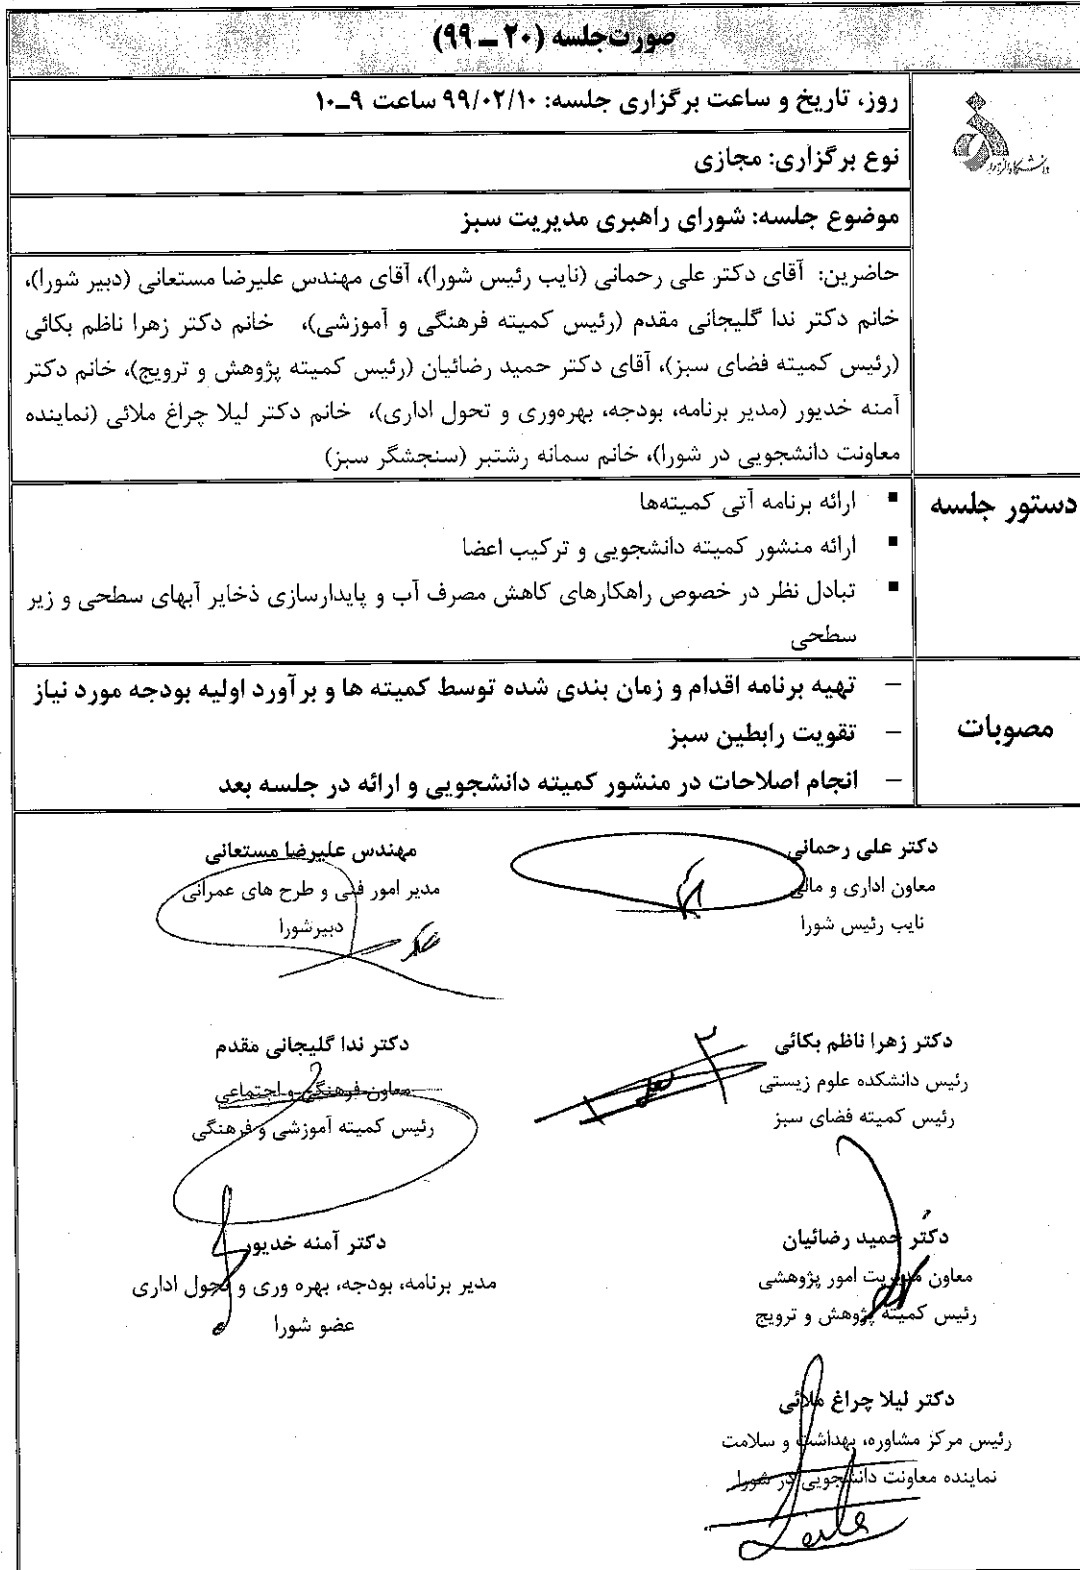 صورت‌جلسه (۲۰ ـ ۹۹)
دانشگاه الزهرا
روز، تاریخ و ساعت برگزاری جلسه: ۹۹/۰۲/۱۰ ساعت ۹ـ۱۰
نوع برگزاری: مجازی
موضوع جلسه: شورای راهبری مدیریت سبز
حاضرین: آقای دکتر علی رحمانی (نایب رئیس شورا)، آقای مهندس علیرضا مستعانی (دبیر شورا)،
خانم دکتر ندا گلیجانی مقدم (رئیس کمیته فرهنگی و آموزشی)، خانم دکتر زهرا ناظم بکائی
(رئیس کمیته فضای سبز)، آقای دکتر حمید رضائیان (رئیس کمیته پژوهش و ترویج)، خانم دکتر
آمنه خدیور (مدیر برنامه، بودجه، بهره‌وری و تحول اداری)، خانم دکتر لیلا چراغ ملائی (نماینده
معاونت دانشجویی در شورا)، خانم سمانه رشتبر (سنجشگر سبز)
دستور جلسه
▪ ارائه برنامه آتی کمیته‌ها
▪ ارائه منشور کمیته دانشجویی و ترکیب اعضا
▪ تبادل نظر در خصوص راهکارهای کاهش مصرف آب و پایدارسازی ذخایر آبهای سطحی و زیر
سطحی
مصوبات
– تهیه برنامه اقدام و زمان بندی شده توسط کمیته ها و برآورد اولیه بودجه مورد نیاز
– تقویت رابطین سبز
– انجام اصلاحات در منشور کمیته دانشجویی و ارائه در جلسه بعد
دکتر علی رحمانی
معاون اداری و مالی
نایب رئیس شورا
مهندس علیرضا مستعانی
مدیر امور فنی و طرح های عمرانی
دبیرشورا
دکتر زهرا ناظم بکائی
رئیس دانشکده علوم زیستی
رئیس کمیته فضای سبز
دکتر ندا گلیجانی مقدم
معاون فرهنگی و اجتماعی
رئیس کمیته آموزشی و فرهنگی
دکتر حمید رضائیان
معاون مدیریت امور پژوهشی
رئیس کمیته پژوهش و ترویج
دکتر آمنه خدیور
مدیر برنامه، بودجه، بهره وری و تحول اداری
عضو شورا
دکتر لیلا چراغ ملائی
رئیس مرکز مشاوره، بهداشت و سلامت
نماینده معاونت دانشجویی در شورا